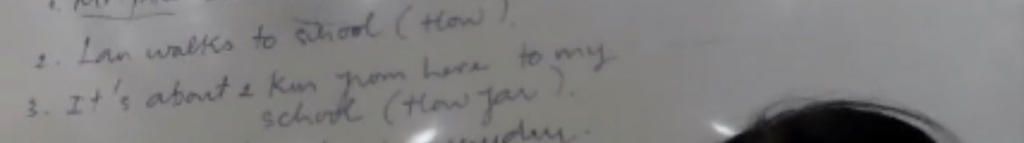 2. Lan walks to school (How).
3. It's about 2 km from here to my
school (How far).